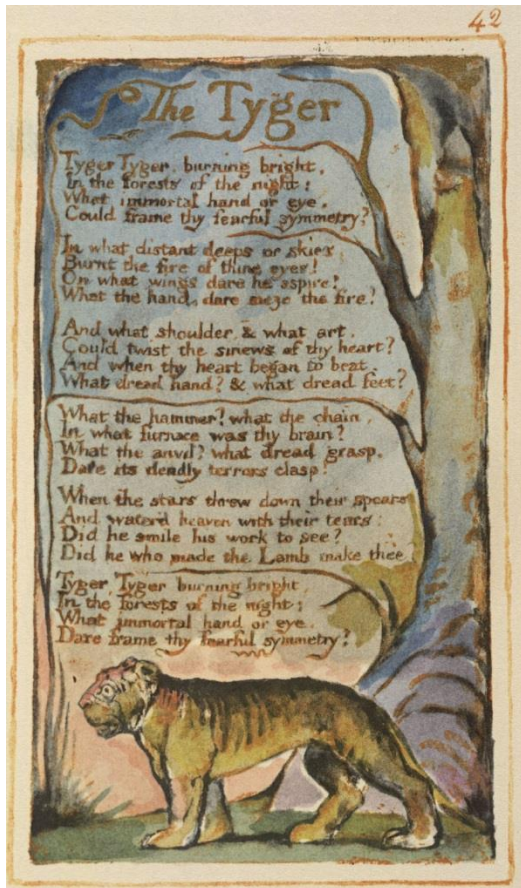 42
The Tyger
Tyger Tyger, burning bright,
In the forests of the night;
What immortal hand or eye,
Could frame thy fearful symmetry?
In what distant deeps or skies,
Burnt the fire of thine eyes!
On what wings dare he aspire?
What the hand, dare sieze the fire?
And what shoulder, & what art,
Could twist the sinews of thy heart?
And when thy heart began to beat,
What dread hand? & what dread feet?
What the hammer? what the chain,
In what furnace was thy brain?
What the anvil? what dread grasp,
Dare its deadly terrors clasp!
When the stars threw down their spears
And water'd heaven with their tears:
Did he smile his work to see?
Did he who made the Lamb make thee
Tyger, Tyger burning bright,
In the forests of the night;
What immortal hand or eye,
Dare frame thy fearful symmetry?